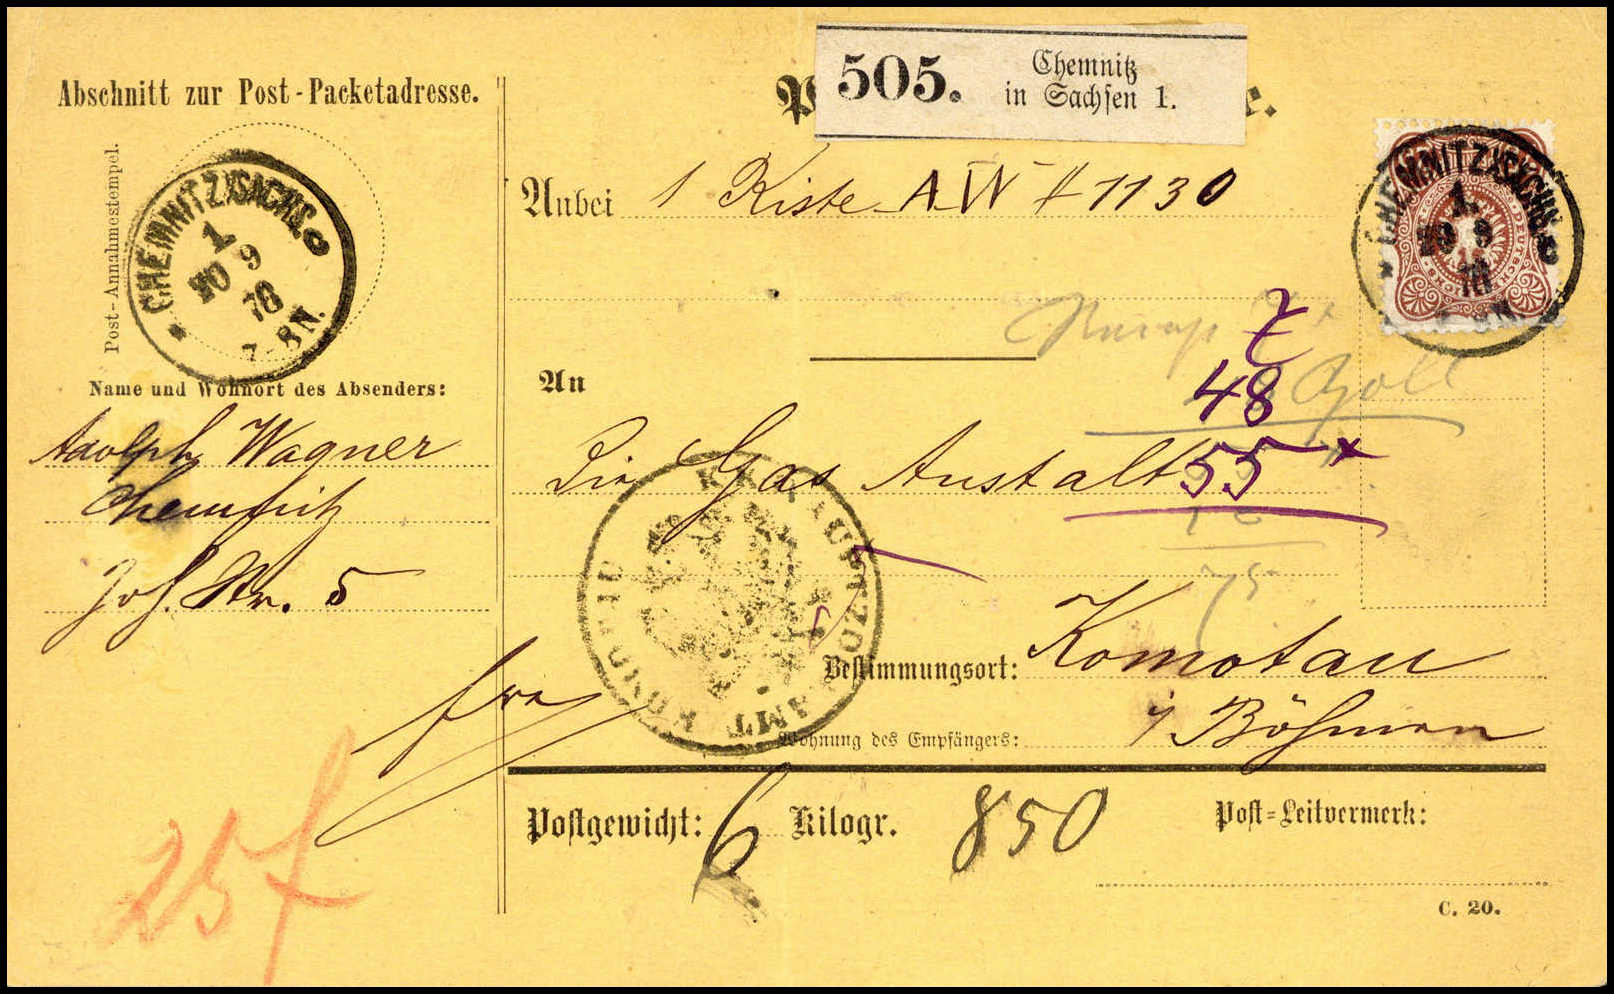 Abschnitt zur Post-Packetadresse.
Post-Annahmestempel.
CHEMNITZ I SACHS.
1.
20 9
78
7-8N.
Name und Wohnort des Absenders:
Adolph Wagner
Chemnitz
Joh. Str. 5
frco
25 f
505.
Chemnitz
in Sachsen 1.
P
e.
Anbei 1 Kiste AW # 1130
CHEMNITZ I SACHS.
1.
20 9
78
8N.
An
Zoll
48
Die Gas Anstalt
55
75
K.K. HAUPTZOLLAMT KOMOTAU
Bestimmungsort: Komotau
Wohnung des Empfängers: i/Böhmen
Postgewicht: 6 Kilogr. 850
Post-Leitvermerk:
C. 20.